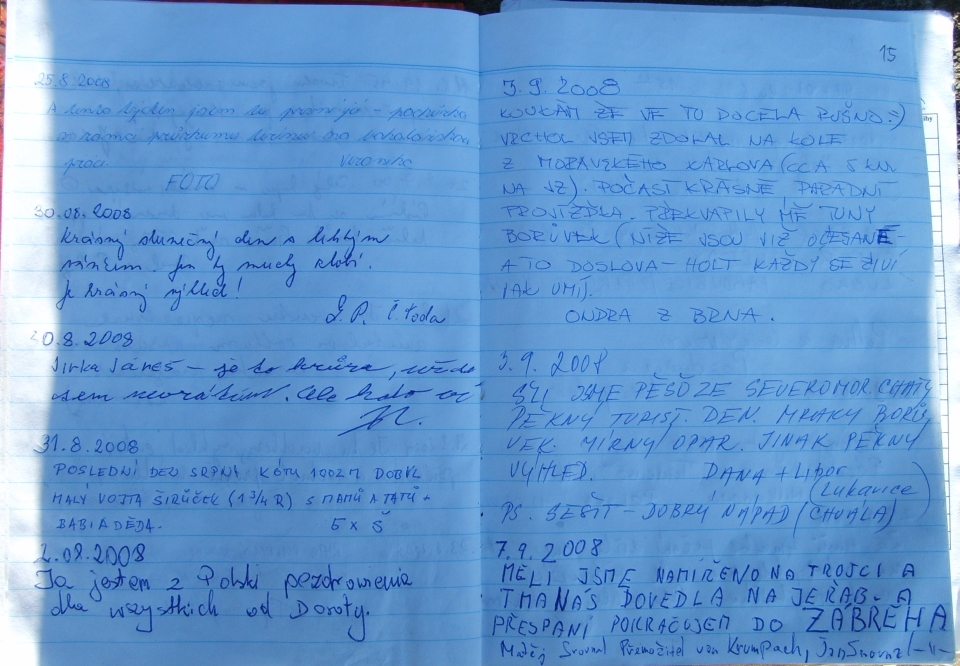 25.8.2008
A tento týden jsem tu první já - pochůzka
v rámci průzkumu terénu na bakalářskou
práci Veronika
FOTO
30.08.2008
Krásný slunečný den s lehkým
vánkem. Jen ty mouchy zlobí.
Je krásný výhled!
J.P. Č.
30.8.2008
Jirka Jáneš - je to
jsem Ale
31.8.2008
POSLEDNÍ DEN SRPNA KÓTU 1002M DOBYL
MALÝ VOJTA ŠIRŮČEK (1 3/4 R) S MAMŮ A TATŮ +
BABI A DĚDA. 5 x Š
2.08.2008
Ja jestem z Polski pozdrowienia
dla wszystkich od Doroty.
15
3.9.2008
KOUKÁM ŽE JE TU DOCELA RUŠNO :-)
VRCHOL JSEM ZDOLAL NA KOLE
Z MORAVSKÉHO KARLOVA (CCA 5 KM
NA JZ). POČASÍ KRÁSNÉ PARÁDNÍ
PROJÍŽĎKA. PŘEKVAPILY MĚ TUNY
BORŮVEK (NÍŽE JSOU VÍŽ OČESANÉ -
A TO DOSLOVA - HOLT KAŽDÝ SE ŽIVÍ
JAK UMÍ).
ONDRA Z BRNA.
3.9.2008
ŠLI JSME PĚŠO ZE SEVEROMOR. CHATY
PĚKNÝ TURIST. DEN. MRAKY BORŮ-
VEK. MÍRNÝ OPAR. JINAK PĚKNÝ
VÝHLED. DANA + Libor
(Lukavice)
PS. SEŠIT - DOBRÝ NÁPAD (CHVÁLA)
7.9.2008
MĚLI JSME NAMÍŘENO NA TROJCI A
TMA NÁS DOVEDLA NA JEŘÁB. A
PŘESPÁNÍ POKRAČUJEM DO ZÁBŘEHA
Matěj Srovnal Přemožitel von Krumpach, Jan Srovnal -||-